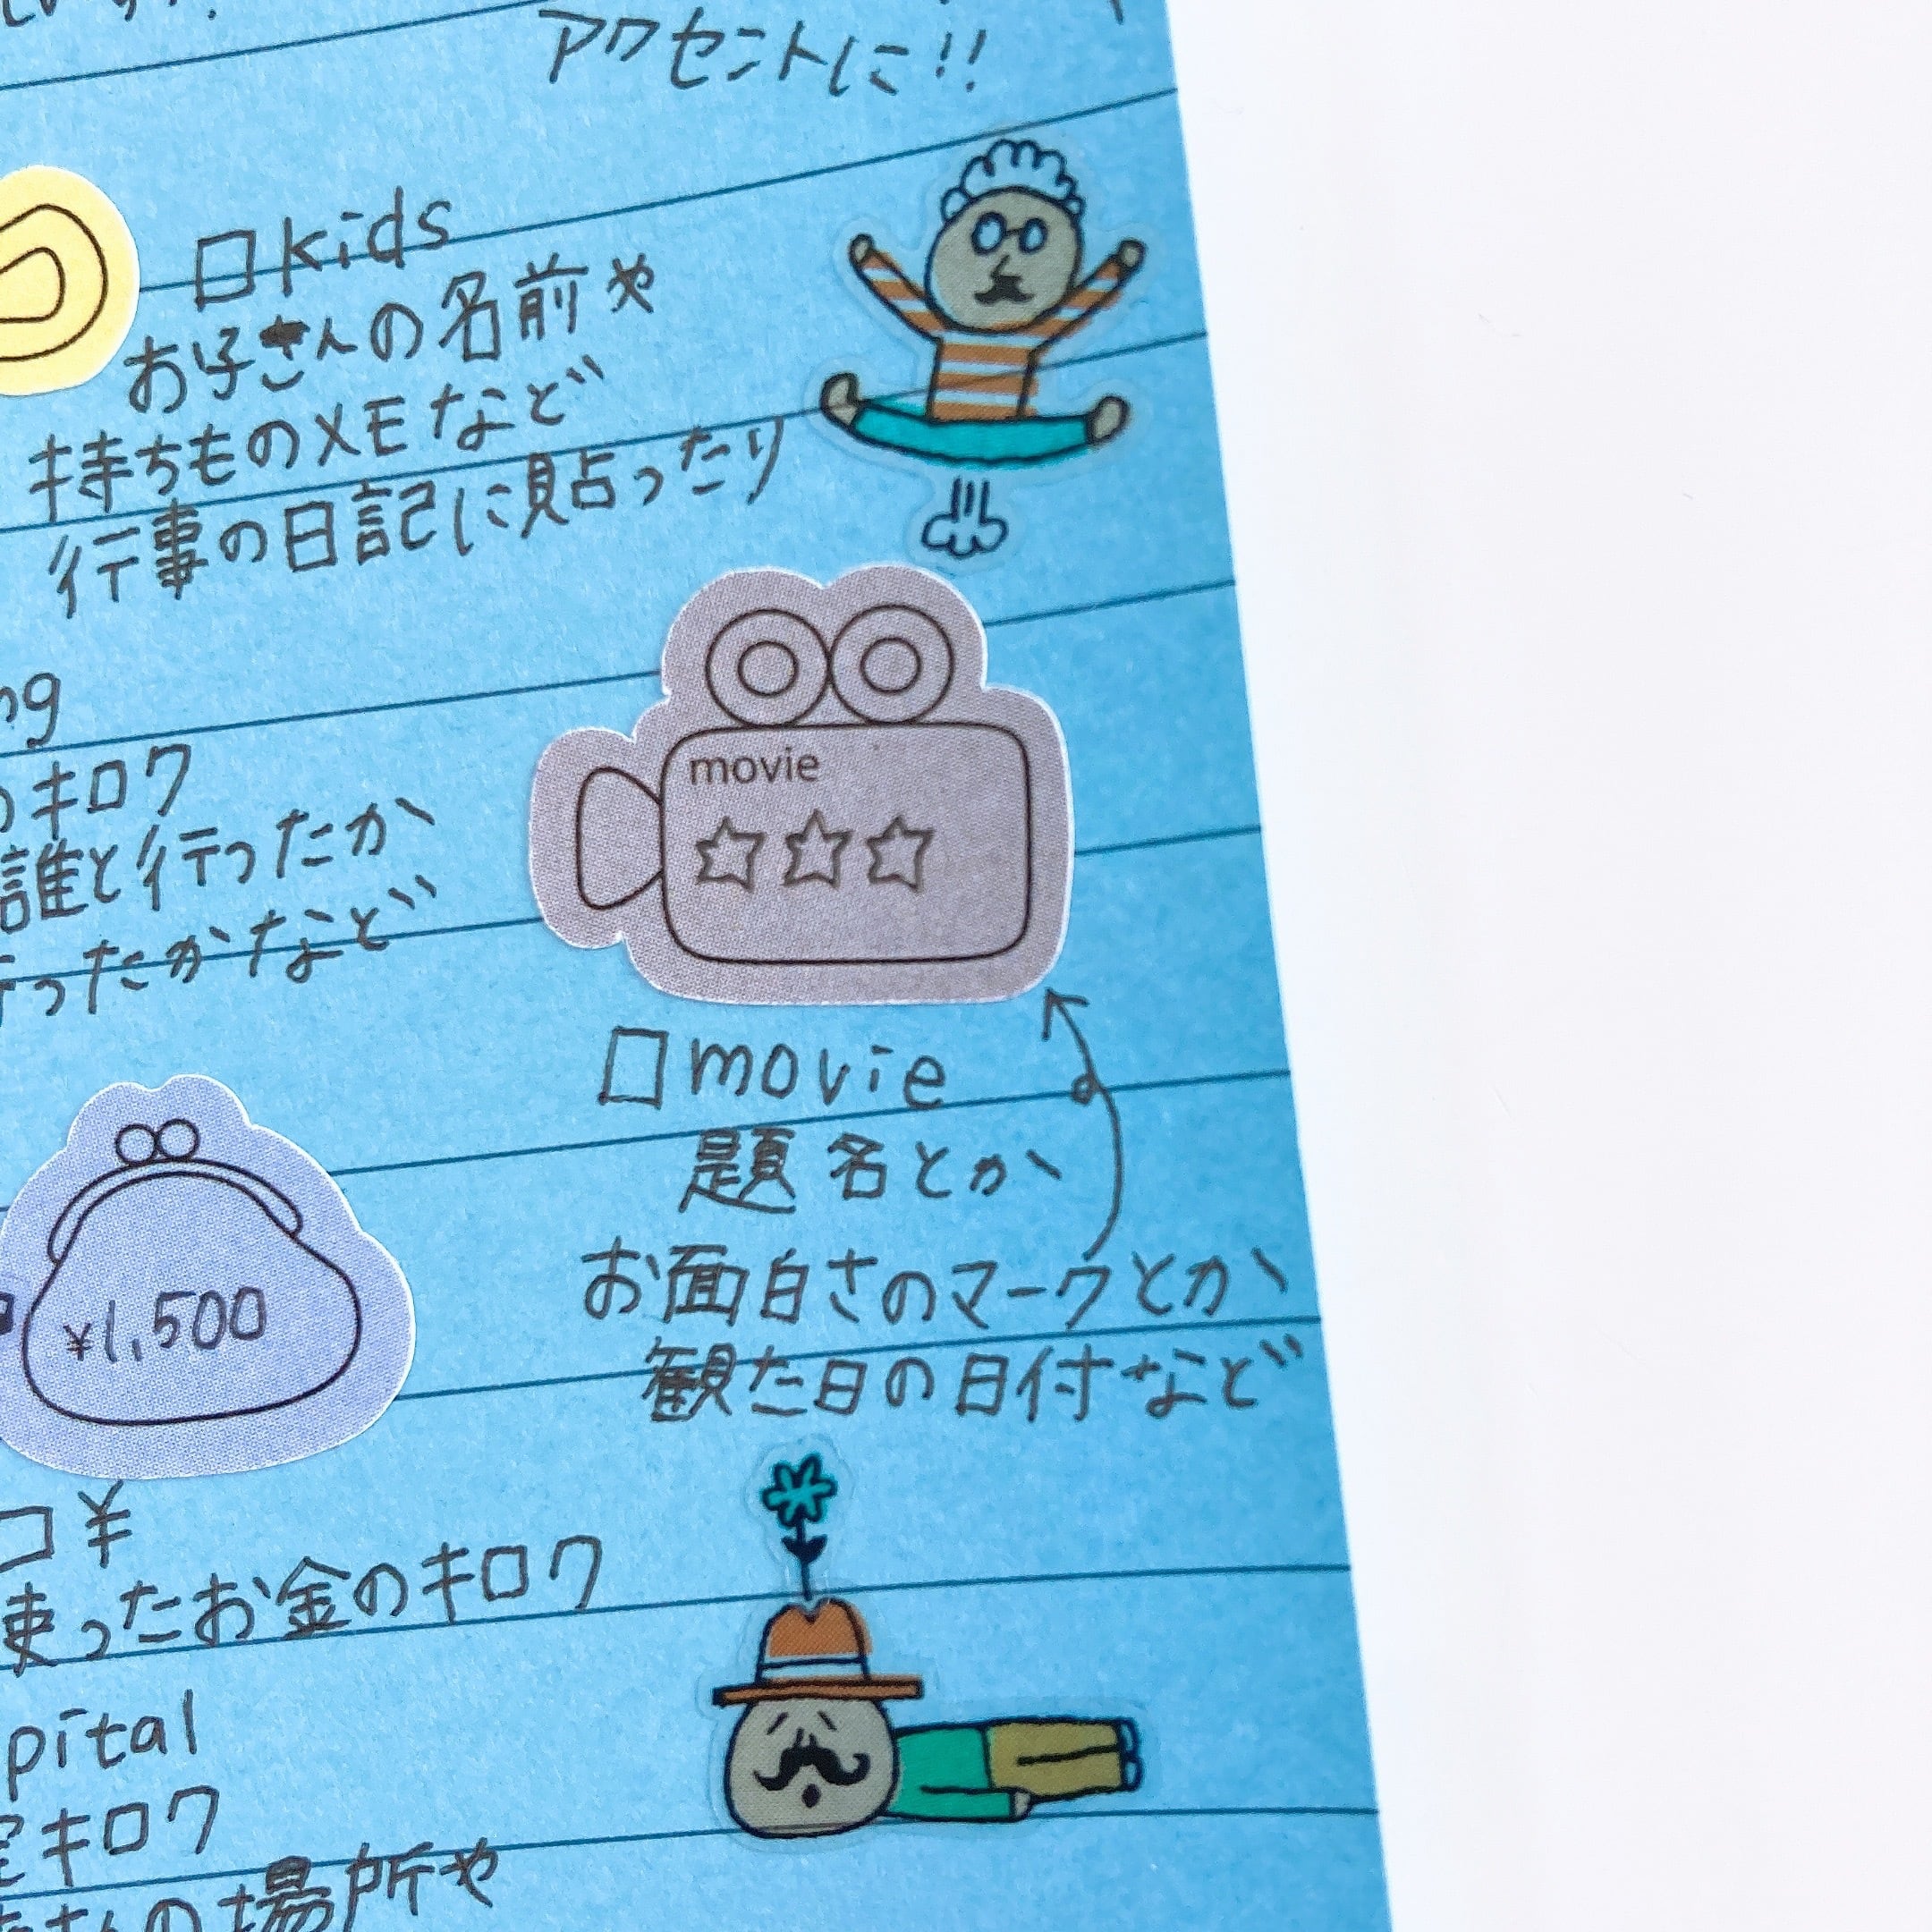 アクセントに!!
□kids
お子さんの名前や
持ちもの メモ など
行事の日記に貼ったり
movie
☆☆☆
のキロク
誰と行ったか、
行ったかなど
□movie
題名とか、
お面白さのマークとか、
観た日の日付など
¥1,500
□¥
使ったお金のキロク
pital
キロク
の場所や